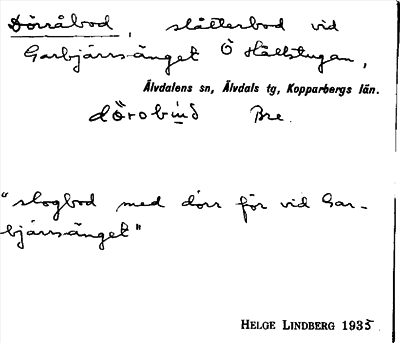 Dörråbod, slåtterbod vid
Garbjärrsänget Ö Hällstugan,
Älvdalens sn, Älvdals tg, Kopparbergs län.
Bre.
"slogbod med dörr för vid Gar-
bjärrsänget"
HELGE LINDBERG 1935